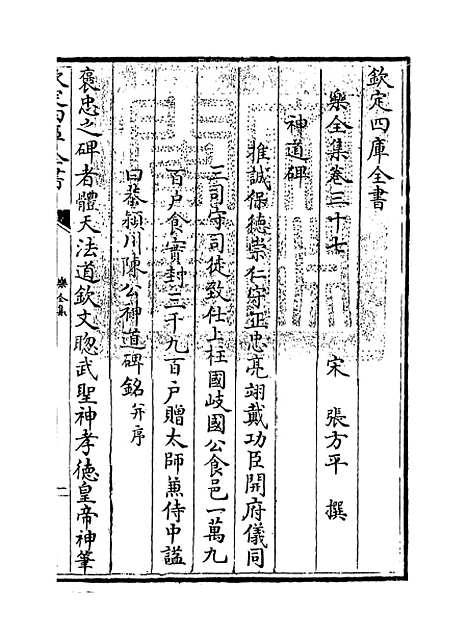 欽定四庫全書
樂全集卷三十七
宋 張方平 撰
神道碑
推誠保德崇仁守正忠亮翊戴功臣開府儀同
三司守司徒致仕上柱國岐國公食邑一萬九
百户食實封三千九百户贈太師兼侍中謚
曰恭潁川陳公神道碑銘并序
褒忠之碑者體天法道欽文聰武聖神孝德皇帝神筆
欽定四庫全書
樂全集
一